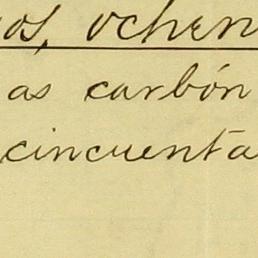 os, ochen
as carbón
cincuenta